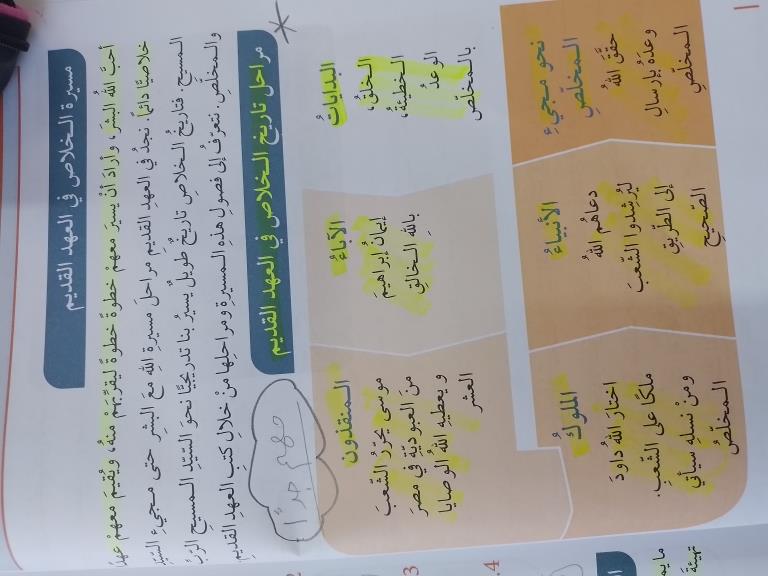 مسيرة الخلاص في العهد القديم
أحبَّ اللهُ البشرَ، وأرادَ أنْ يسيرَ معهمْ خطوةً خطوةً ليقرّبَهمْ منهُ، ويُقيمَ معهمْ عهدًا
خلاصيًّا دائمًا. نجدُ في العهدِ القديمِ مراحلَ مسيرةِ اللهِ معَ البشرِ حتى مجيءِ السيّدِ
المسيحِ. فتاريخُ الخلاصِ تاريخٌ طويلٌ يسيرُ بنا تدريجيًّا نحوَ السيّدِ المسيحِ الرّبِّ
والمخلّصِ. نتعرّفُ إلى فصولِ هذهِ المسيرةِ ومراحلِها منْ خلالِ كتبِ العهدِ القديمِ.
مراحل تاريخ الخلاص في العهد القديم
مهم جدًا
البداياتُ
الخلقُ،
الخطيئةُ،
الوعدُ
بالمخلّصِ
الآباءُ
إيمانُ إبراهيمَ
باللهِ الخالقِ
المنقذون
موسى يحرّرُ الشّعبَ
منَ العبوديّةِ في مصرَ
ويعطيهِ اللهُ الوصايا
العشر
الملوكُ
اختارَ اللهُ داودَ
ملكًا على الشّعبِ.
ومنْ نسلِهِ سيأتي
المخلّصُ
الأنبياءُ
دعاهُم اللهُ
ليُرشدوا الشّعبَ
إلى الطّريقِ
الصّحيحِ
نحوَ مجيءِ
المخلّصِ
حقّقَ اللهُ
وعدَهُ بإرسالِ
المخلّصِ
3
4.
تهيئة